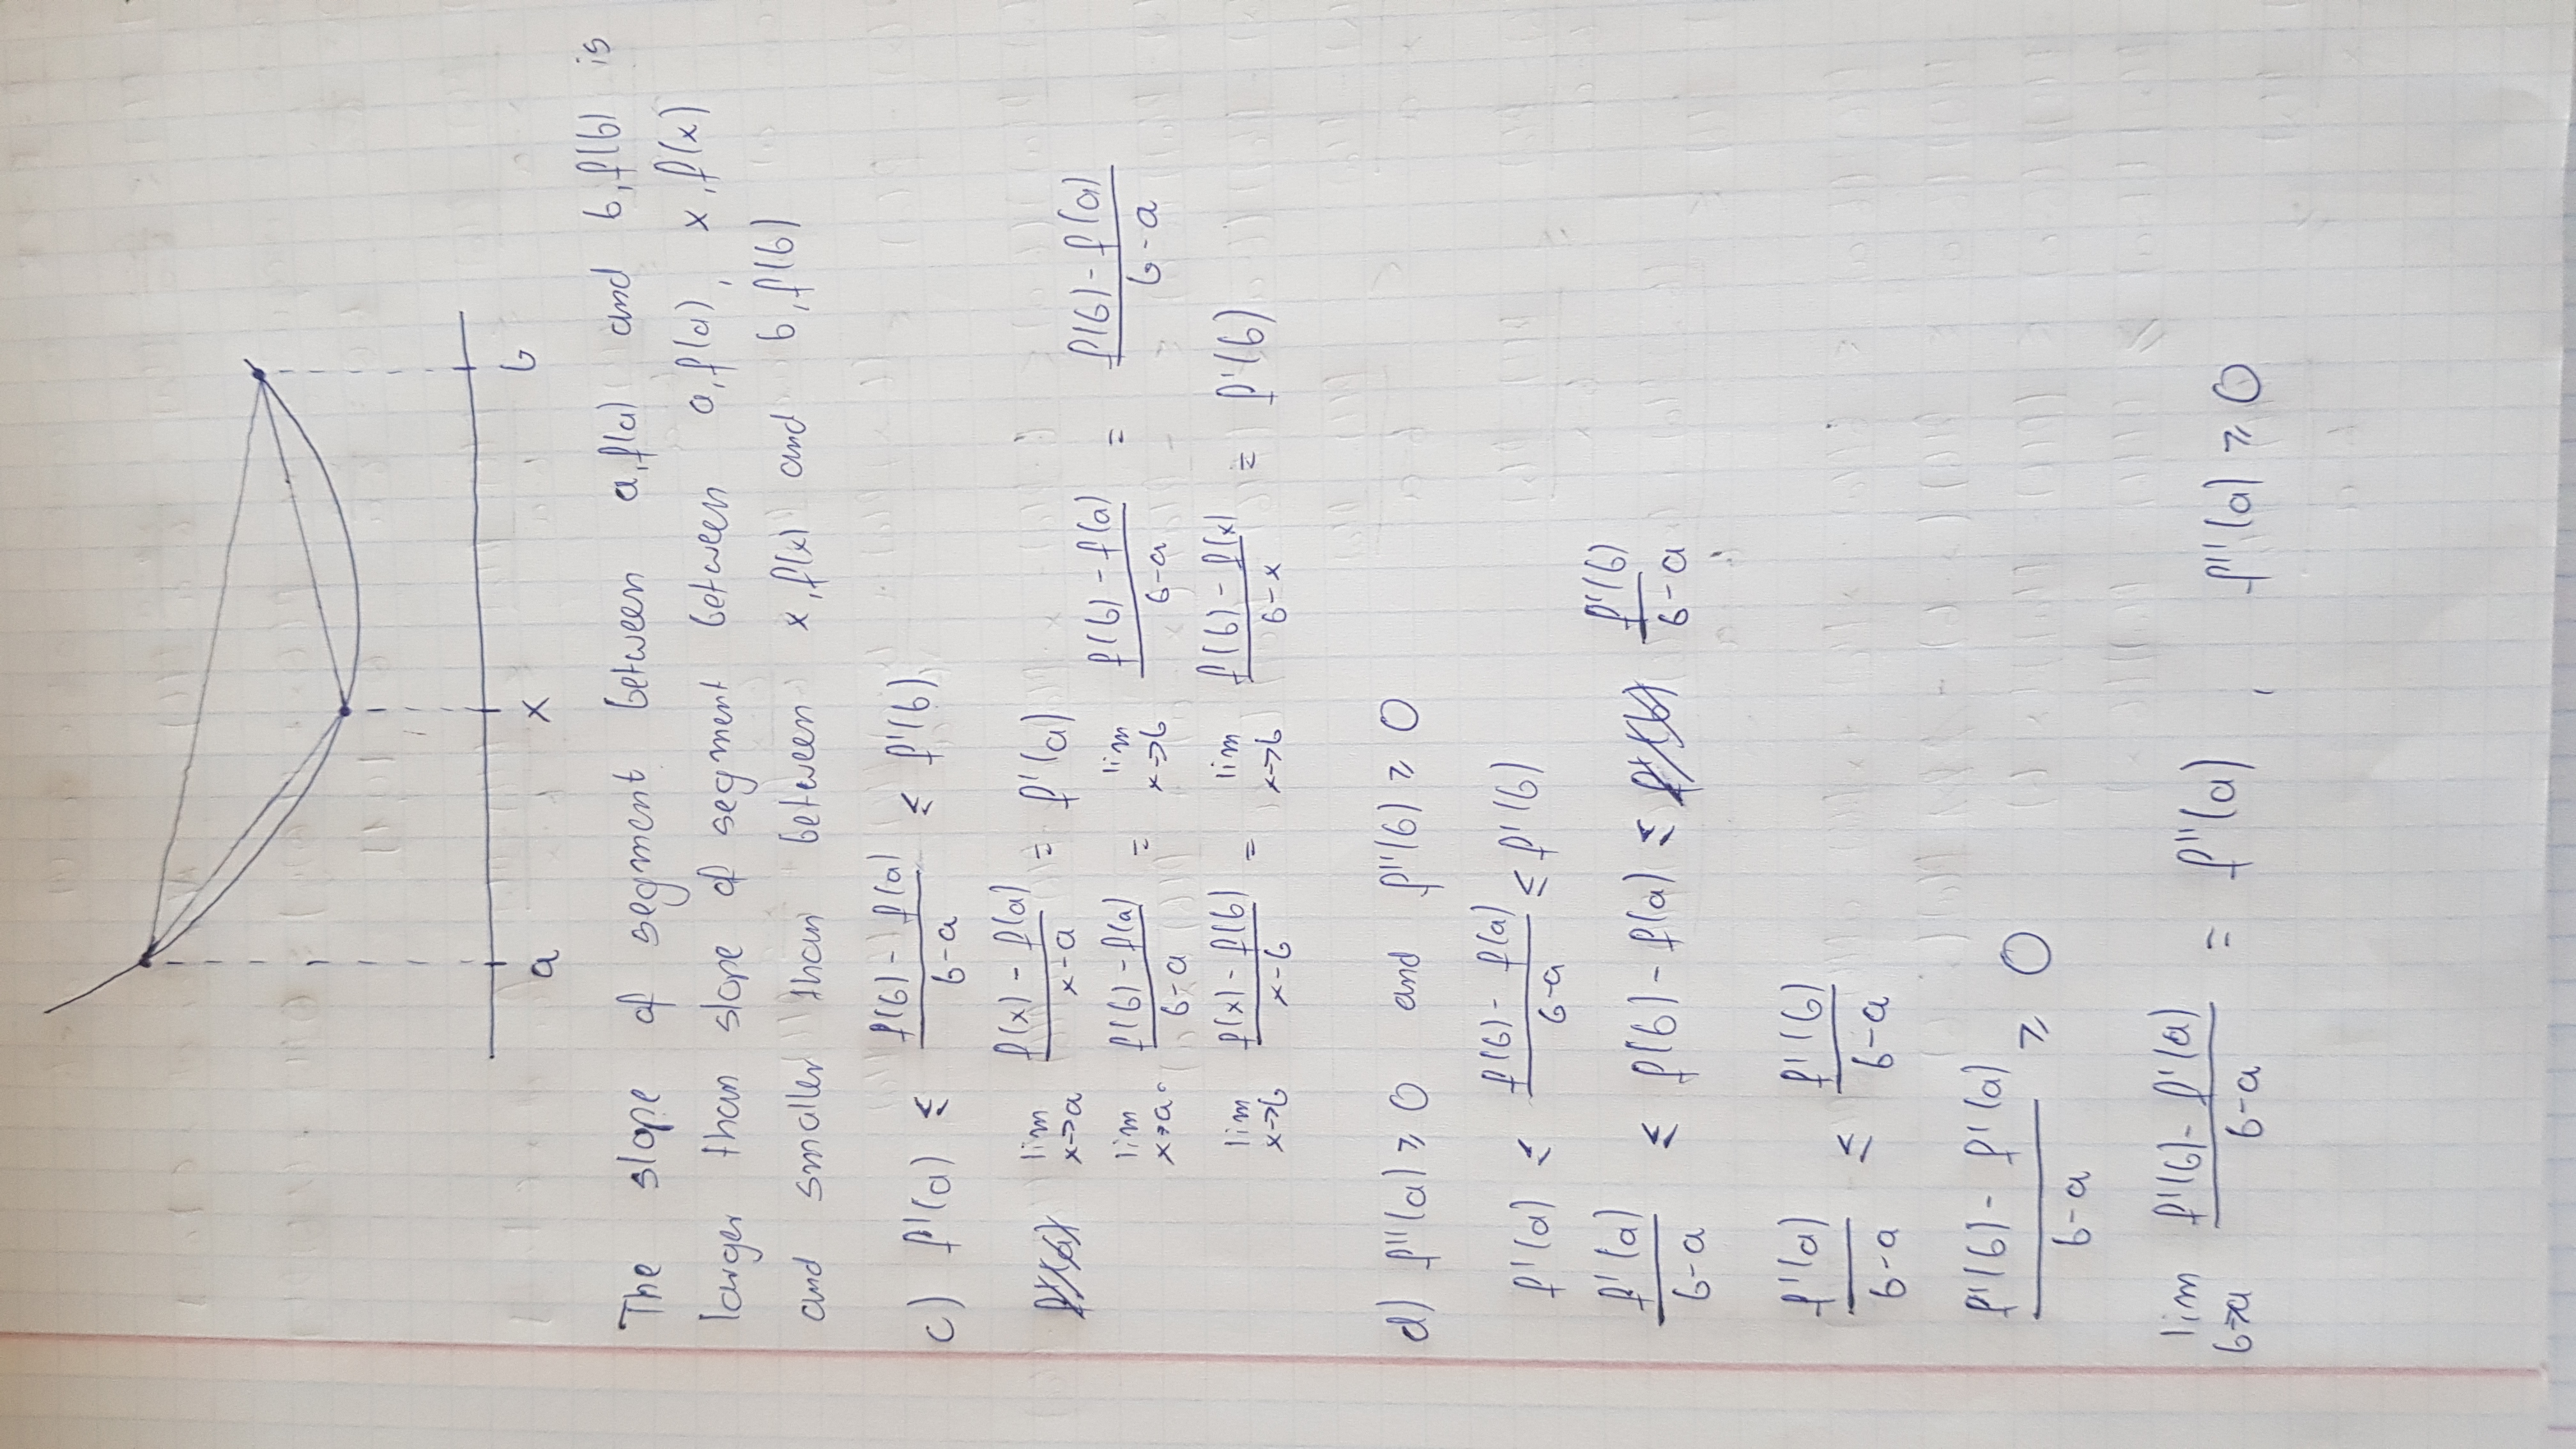 a x b
The slope of segment between a,f(a) and b,f(b) is
larger than slope of segment between a,f(a), x,f(x)
and smaller than between x,f(x) and b,f(b)
c) f'(a) ≤ (f(b) - f(a))/(b-a) ≤ f'(b)
lim x→a (f(x) - f(a))/(x-a) = f'(a)
lim x→a (f(b) - f(a))/(b-a) = lim x→b (f(b) - f(a))/(b-a) = (f(b) - f(a))/(b-a)
lim x→b (f(x) - f(b))/(x-b) = lim x→b (f(b) - f(x))/(b-x) = f'(b)
d) f''(a) ≥ 0 and f''(b) ≥ 0
f'(a) ≤ (f(b) - f(a))/(b-a) ≤ f'(b)
f'(a)/(b-a) ≤ f(b) - f(a) ≤ f'(b)/(b-a)
f'(a)/(b-a) ≤ f'(b)/(b-a)
(f'(b) - f'(a))/(b-a) ≥ 0
lim b→a (f'(b) - f'(a))/(b-a) = f''(a), f''(a) ≥ 0